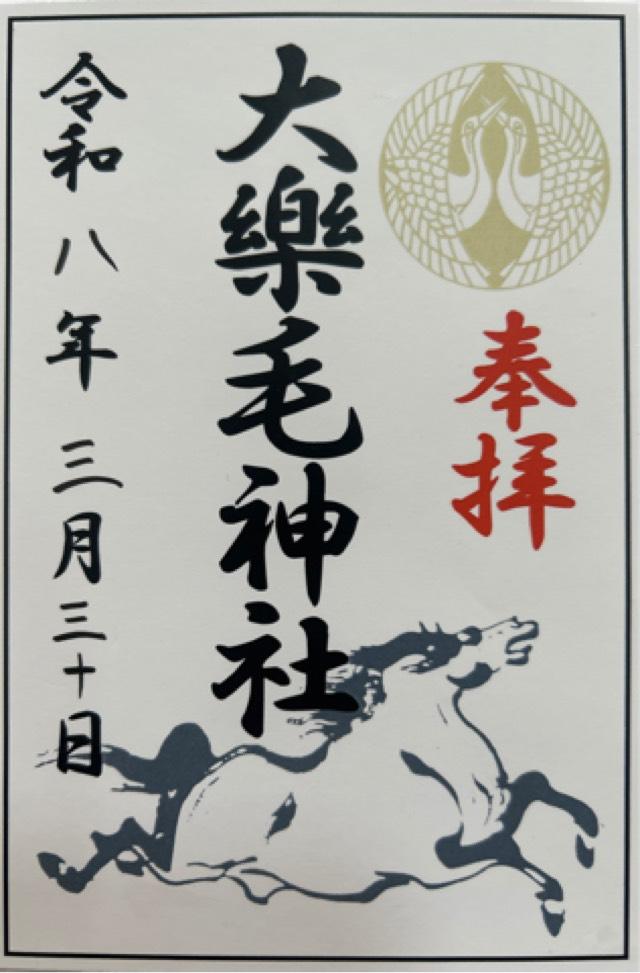 奉拝
大樂毛神社
令和八年三月三十日